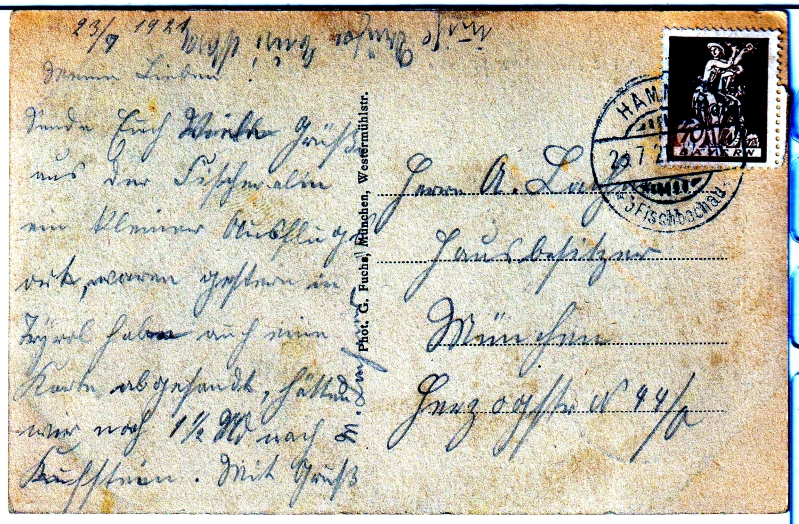 23/7 1921
Meine Lieben!
Sende Euch Viele Grüße
aus der Fischeralm
ein kleiner Ausflugs
ort, waren gestern in
Tyrol haben auch eine
Karte abgesandt, hätten
wir noch 1½ Std nach
Kufstein. Mit Gruß
Phot. G. Fuchs, München, Westermühlstr.
BAYERN
Fischbachau
Herrn A.
Hausbesitzer
München
Herzogstr N 44/